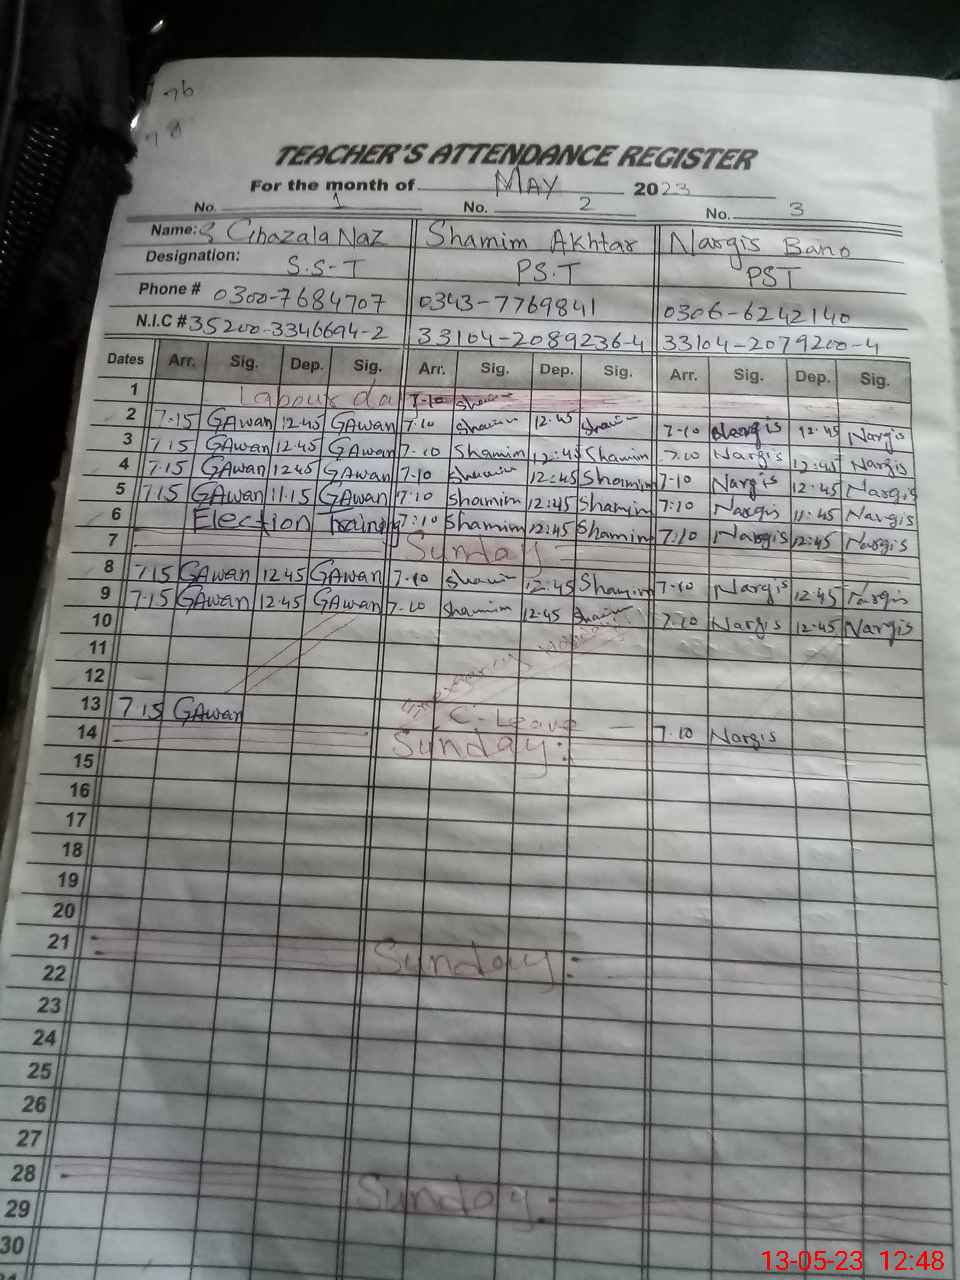 76
78
TEACHER'S ATTENDANCE REGISTER
For the month of MAY 2023
No. 1 No. 2 No. 3
Name: Ghazala Naz Shamim Akhtar Nargis Bano
Designation: S.S-T PS.T PST
Phone # 0300-7684707 0343-7769841 0306-6242140
N.I.C # 35200-3346694-2 33104-2089236-4 33104-2079200-4
Dates Arr. Sig. Dep. Sig. Arr. Sig. Dep. Sig. Arr. Sig. Dep. Sig.
1 Labour day 7-10
2 7-15 GAwan 12.45 GAwan 7.10 Shamim 12.45 Shamim 7-10 Nargis 12.45 Nargis
3 7.15 GAwan 12.45 GAwan 7.10 Shamim 12:45 Shamim 7.10 Nargis 12:45 Nargis
4 7.15 GAwan 12.45 GAwan 7.10 Shamim 12:45 Shamim 7-10 Nargis 12:45 Nargis
5 7.15 GAwan 11.15 GAwan 7.10 Shamim 12:45 Shamim 7:10 Nargis 11:45 Nargis
6 Election Training 7:10 Shamim 12:45 Shamim 7:10 Nargis 12:45 Nargis
7 Sunday
8 7.15 GAwan 12.45 GAwan 7.10 Shamim 12:45 Shamim 7-10 Nargis 12:45 Nargis
9 7.15 GAwan 12.45 GAwan 7.10 Shamim 12.45 Shamim 7.10 Nargis 12:45 Nargis
10
11
12 Emergency
13 7.15 GAwan C-Leave 7.10 Nargis
14 Sunday:
15
16
17
18
19
20
21 Sunday:
22
23
24
25
26
27
28 Sunday
29
30
13-05-23 12:48